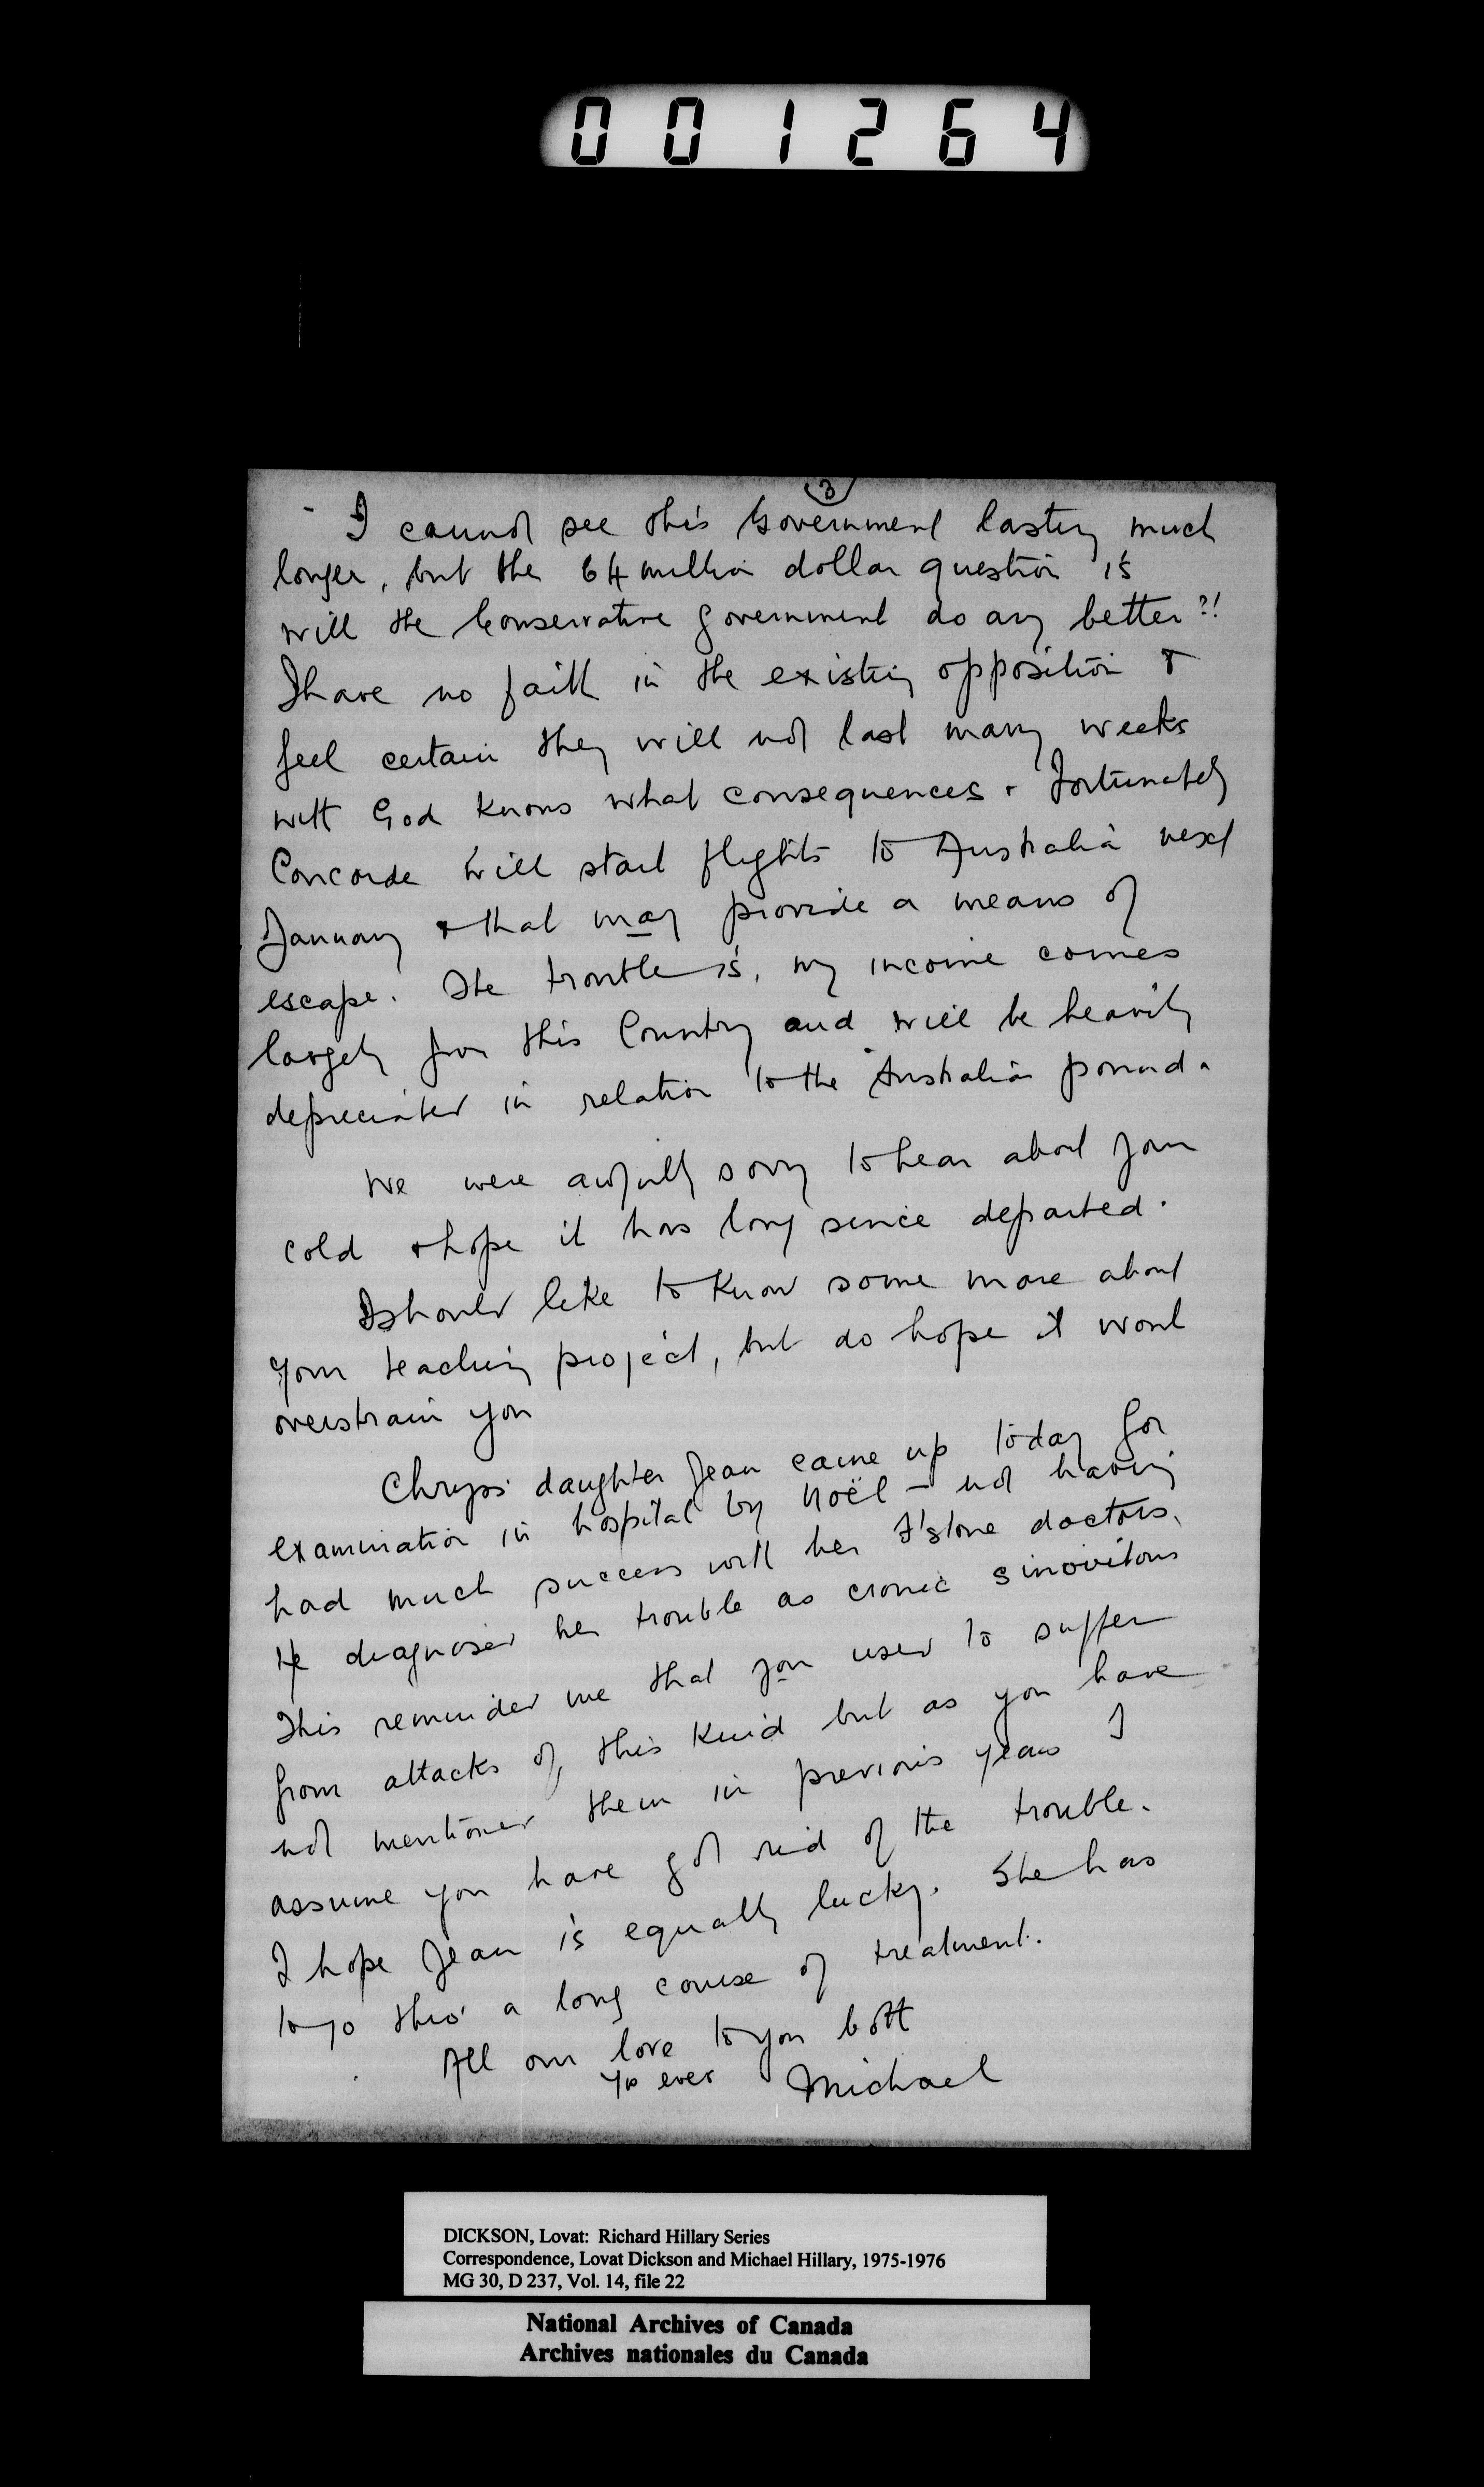 001264
3
I cannot see this Government lasting much
longer, but the 64 million dollar question is
will the Conservative government do any better?!
I have no faith in the existing opposition &
feel certain they will not last many weeks
with God knows what consequences. Fortunately
Concorde will start flights to Australia next
January & that may provide a means of
escape. The trouble is, my income comes
largely from this Country and will be heavily
depreciated in relation to the Australian pound.
We were awfully sorry to hear about your
cold & hope it has long since departed.
I should like to know some more about
your teaching project, but do hope it wont
overstrain you
Chryss' daughter Jean came up today for
examination in hospital by Noël - not having
had much success with her F'stone doctors.
He diagnosed her trouble as cronic sinovitous
This reminded me that you used to suffer
from attacks of this kind but as you have
not mentioned them in previous years I
assume you have got rid of the trouble.
I hope Jean is equally lucky. She has
to go thro' a long course of treatment.
All our love to you both
Yrs ever Michael
DICKSON, Lovat: Richard Hillary Series
Correspondence, Lovat Dickson and Michael Hillary, 1975-1976
MG 30, D 237, Vol. 14, file 22
National Archives of Canada
Archives nationales du Canada